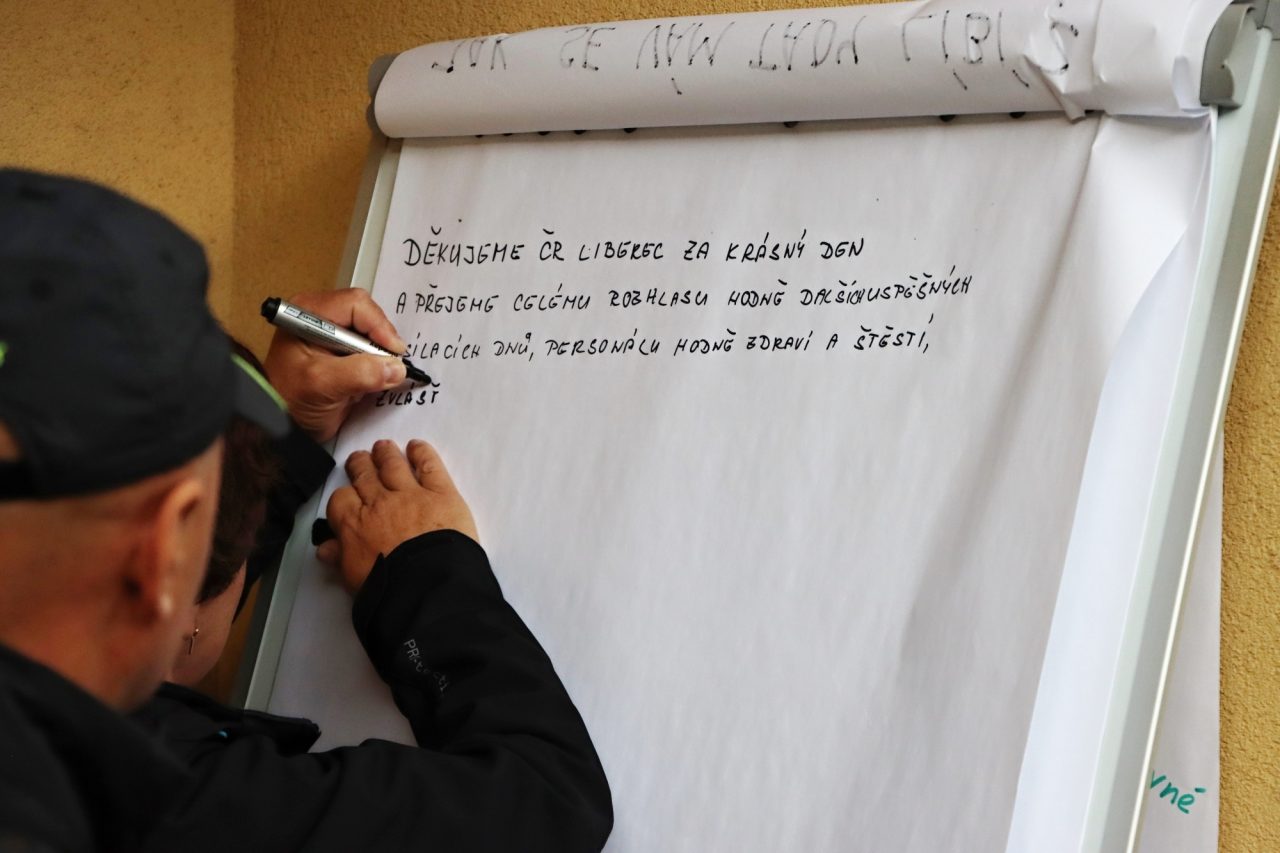 JAK SE NÁM TADY LÍBÍ
DĚKUJEME ČR LIBEREC ZA KRÁSNÝ DEN
A PŘEJEME CELÉMU ROZHLASU HODNĚ DALŠÍCH USPĚŠNÝCH
SÍLACÍCH DNŮ, PERSONÁLU HODNĚ ZDRAVÍ A ŠTĚSTÍ,
ZVLÁŠŤ
vné